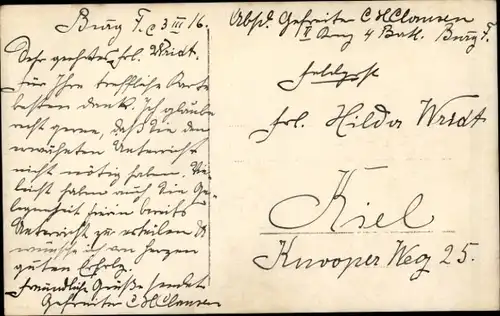 Burg F. 3 III 16.
Sehr geehrtes Frl. Wridt.
Für Ihre treffliche Karte
besten Dank. Ich glaube
recht gerne, daß Sie den
erwähnten Unterricht
nicht nötig haben. Vie-
leicht haben auch Sie Ge-
legenheit seien bereits
Unterricht zu erteilen
wünsche ich von Herzen
guten Erfolg.
Freundliche Grüße sendet
Gefreiter C H Claussen
Absd. Gefreiter C H Claussen
4 Batl. Burg F.
Feldpost
Frl. Hilda Wridt
Kiel
Knooper Weg 25.